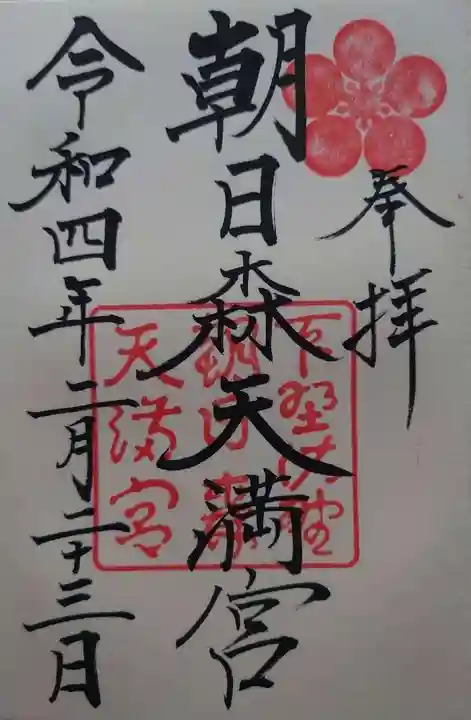 奉拝
朝日森天満宮
下野佐野
朝日森
天満宮
令和四年二月二十三日